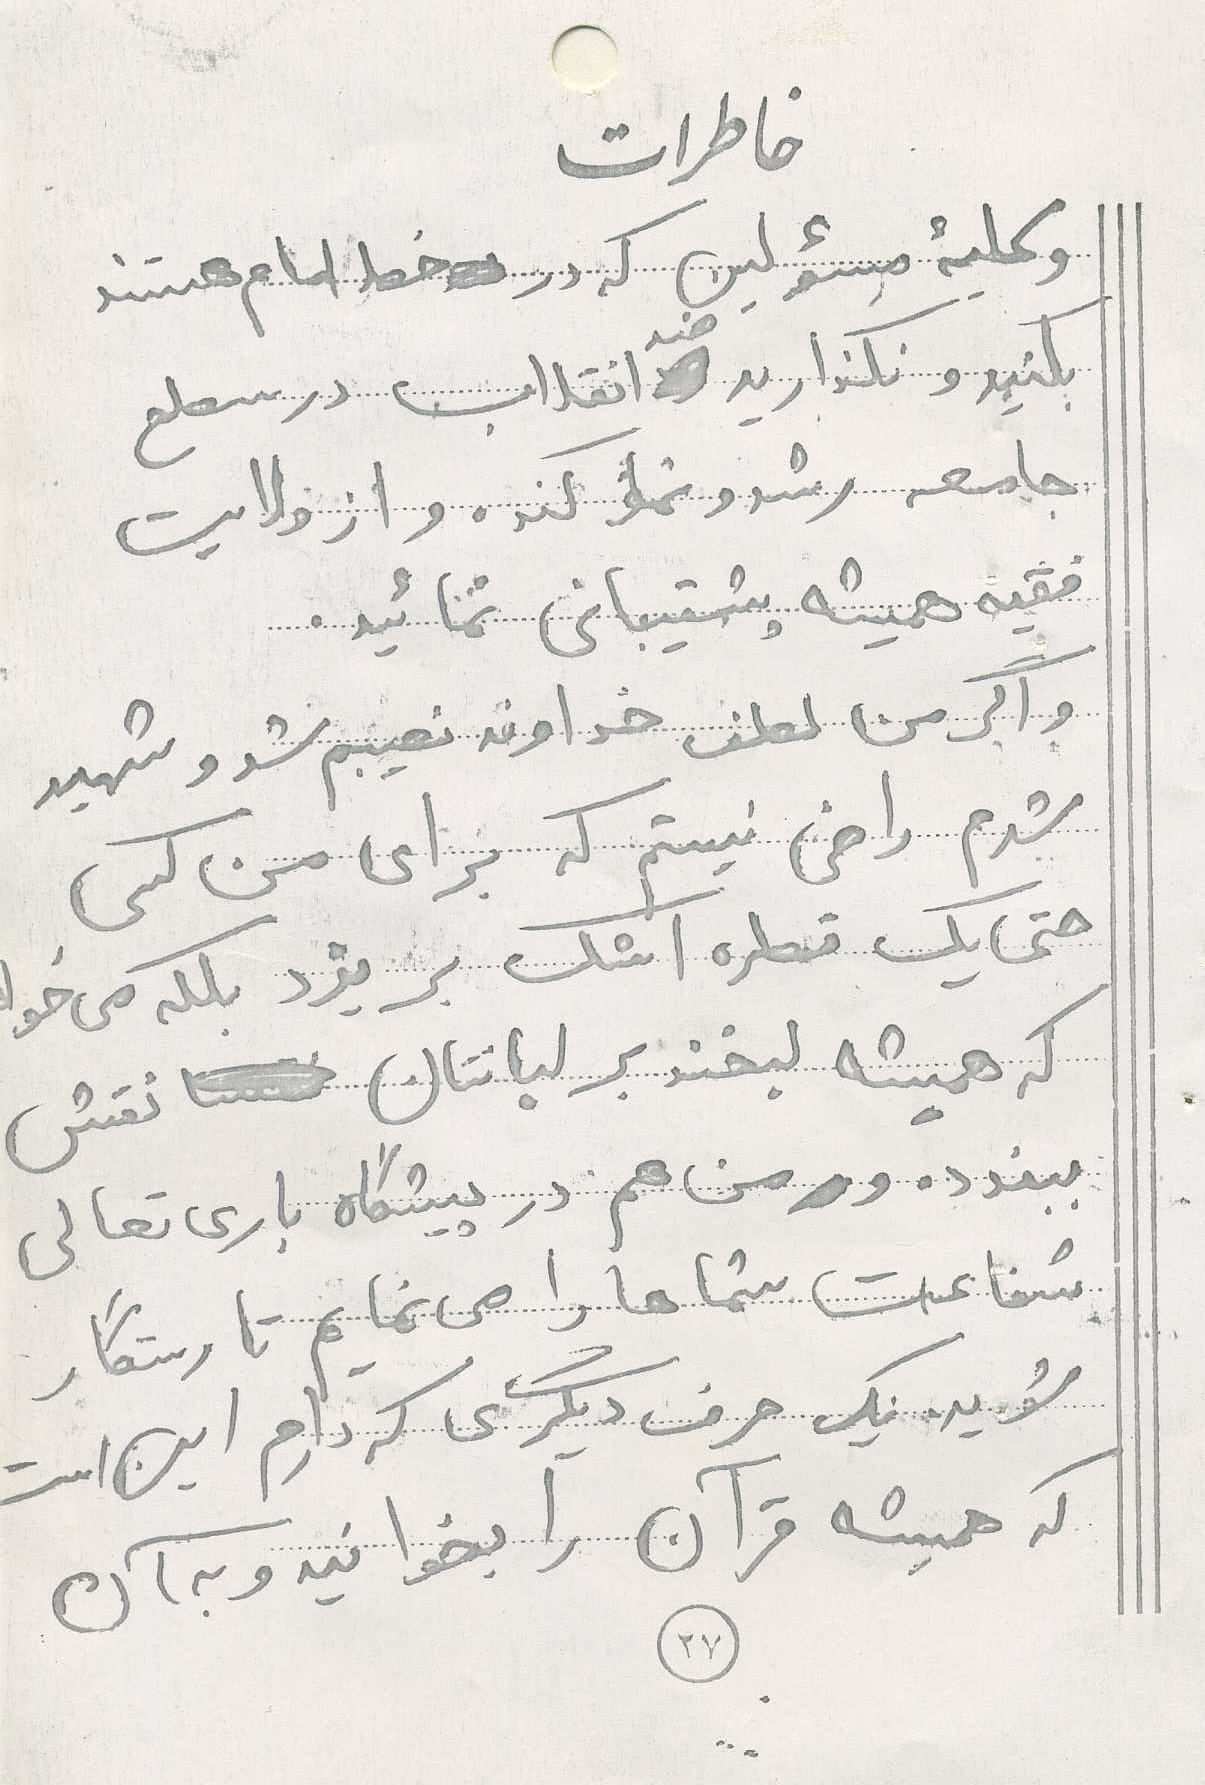 خاطرات
و کلیهٔ مسؤلین که در خط امام هستند
بکنید و نگذارید ضد انقلاب در سطح
جامعه رشد و نمو کند. و از ولایت
فقیه همیشه پشتیبانی نمائید.
و اگر من لطف خداوند نصیبم شد و شهید
شدم راضی نیستم که برای من کسی
حتی یک قطره اشک بریزد بلکه می خوا
که همیشه لبخند بر لبانتان نقش
ببندد. و من هم در پیشگاه باری تعالی
شفاعت شماها را می نمایم تا رستگار
شوید. یک حرف دیگری که دارم این است
که همیشه قرآن را بخوانید و به آن
۲۷